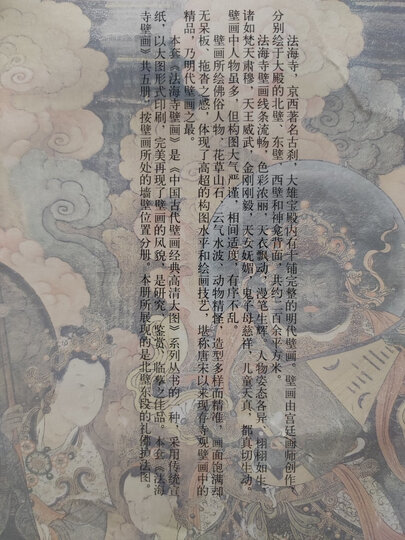 法海寺，京西著名古刹，大雄宝殿内有十铺完整的明代壁画。壁画由宫廷画师创作，
分别绘于大殿的北壁、东壁、西壁和神龛背面，共约二百余平方米。
法海寺壁画线条流畅，色彩浓丽，天衣飘动，漫笔生辉。人物姿态各异，栩栩如生，
诸如梵天肃穆，天王威武，金刚刚毅，天女妩媚，鬼子母慈祥，儿童天真，都真切生动。
壁画中人物虽多，但构图大气严谨，相间适度，有序不乱。
壁画所绘佛俗人物、花草山石、云气水波、动物精怪，造型多样而精准，画面饱满却
无呆板、拖沓之感，体现了高超的构图水平和绘画技艺，堪称唐宋以来现存寺观壁画中的
精品，乃明代壁画之最。
本套《法海寺壁画》是《中国古代壁画经典高清大图》系列丛书的一种，采用传统宣
纸，以大图形式印刷，完美再现了壁画的风貌，是研究、鉴赏、临摹之佳品。本套《法海
寺壁画》共五册，按壁画所处的墙壁位置分册。本册所展现的是北壁东段的礼佛护法图。